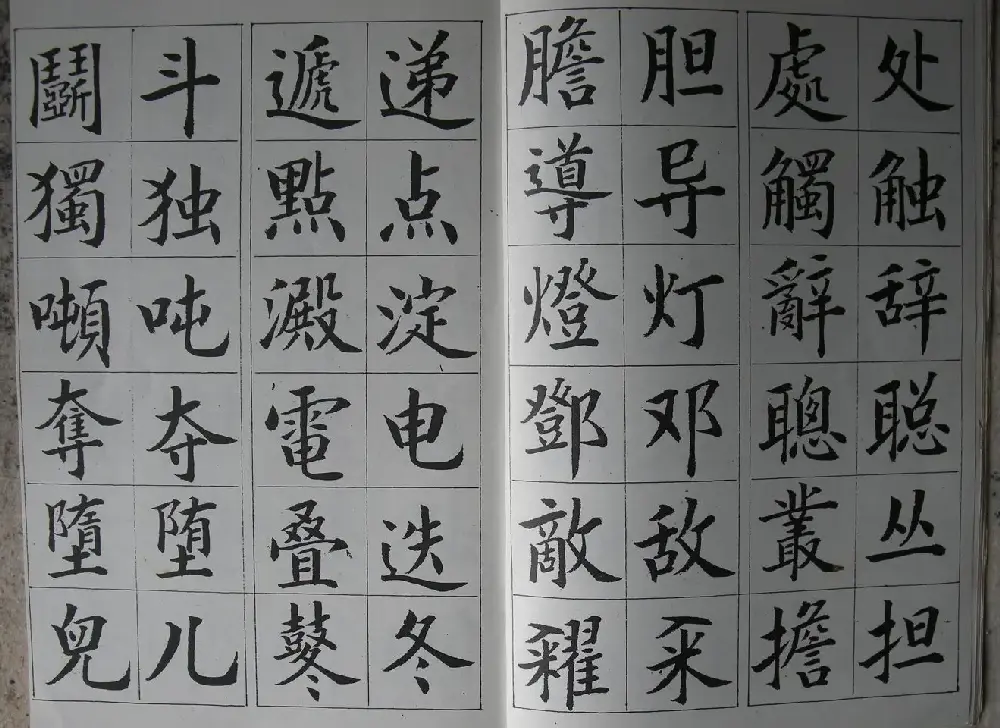 处触辞聪丛担
處觸辭聰叢擔
胆导灯邓敌籴
膽導燈鄧敵糴
递点淀电迭冬
遞點澱電叠鼕
斗独吨夺堕儿
鬭獨噸奪墮兒